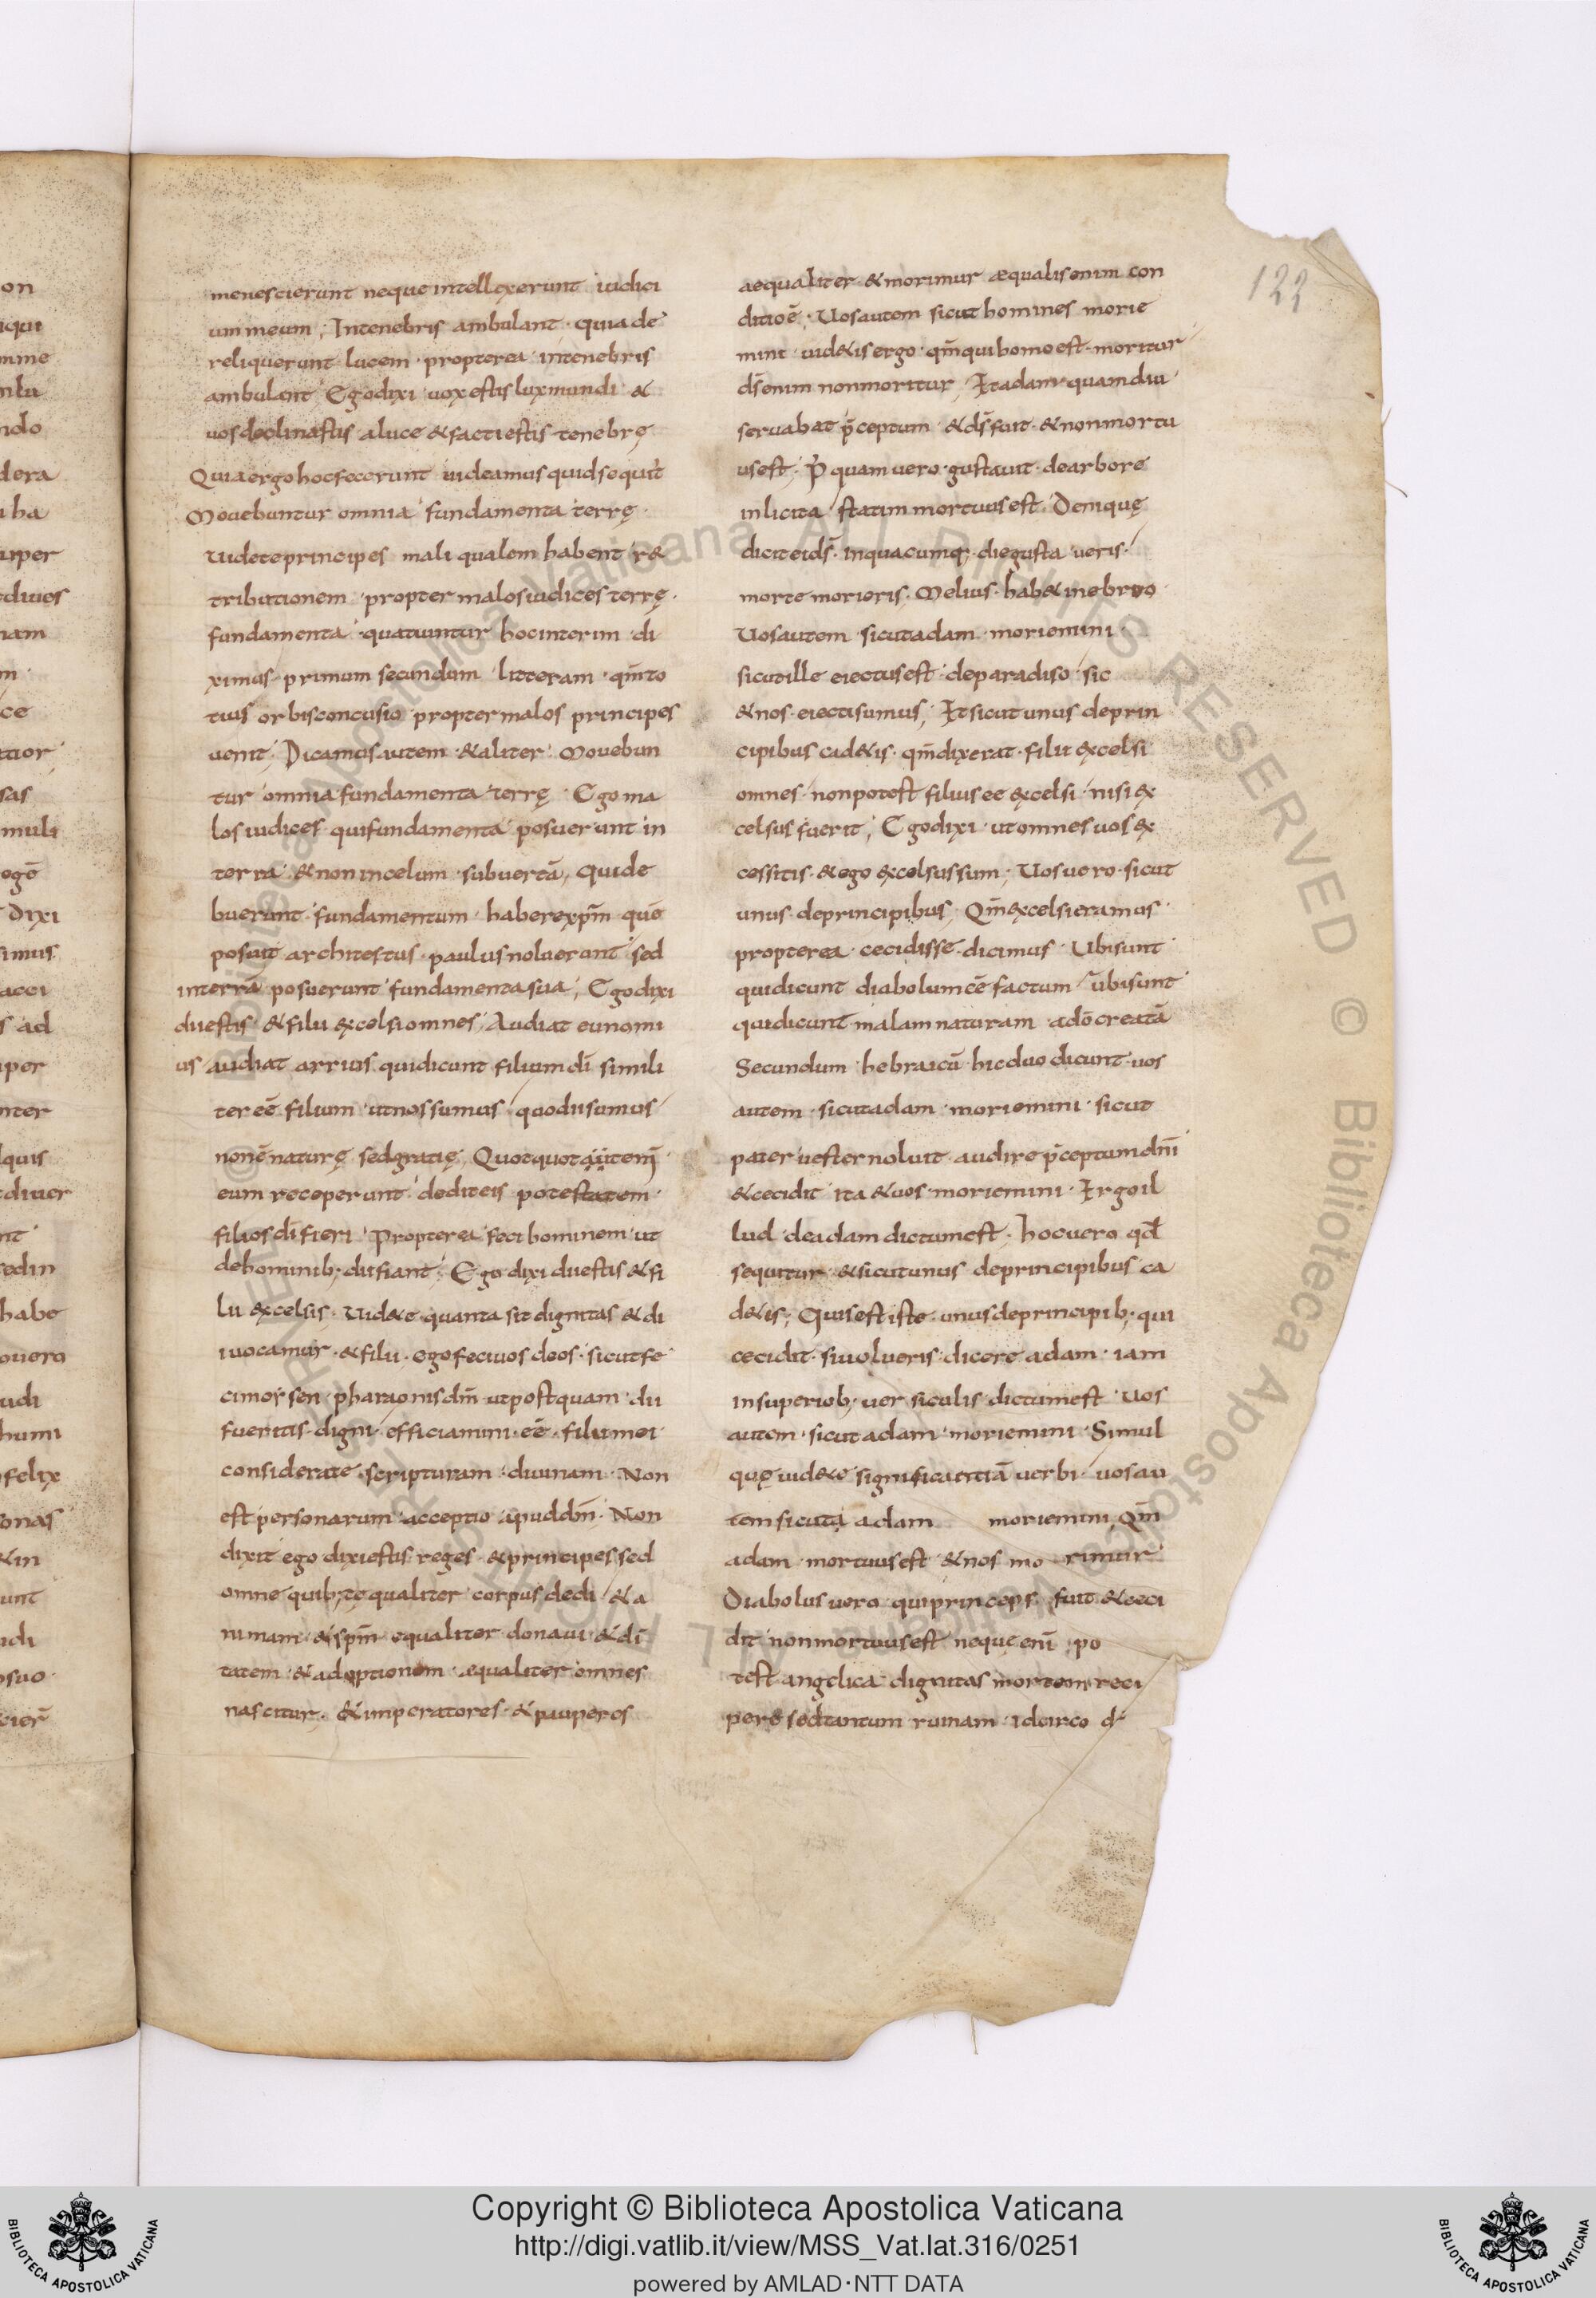 122
menescierunt neque intellexerunt iudici
um meum; Intenebris ambulant · quia de
reliquerunt lucem · propterea intenebris
ambulant Ego dixi uox estis lux mundi &
uos declinastis a luce & facti estis tenebrę
Quia ergo hoc fecerunt uideamus quid sequit
Mouebuntur omnia fundamenta terrę ·
Uidete principes mali qualem habent r&
tributionem · propter malos iudices terrę ·
fundamenta quatiuntur hoc interim di
ximus · primum secundum litteram · qm̄ to
tius orbis concusio propter malos principes
uenit; Dicamus autem & aliter Mouebun
tur omnia fundamenta terrę · Ego ma
los iudices qui fundamenta posuerunt in
terra & non in celum · subuertā, qui de
buerunt fundamentum haberexpm̄ quē
posuit architectus · paulus noluerunt sed
interrā posuerunt fundamenta sua; Ego dixi
dii estis & filii excelsi omnes; Audiat eunomi
us audiat arrius quidicunt filium dī simili
ter eē filium ut nos sumus quod ii sumus
non ē naturę sed gratię, Quotquot autem
eum receperunt dedit eis potestatem ·
filios dī fieri Propterea feci hominem ut
de hominib; dii fiant; Ego dixi dii estis & fi
lii excelsis · Uid&e quanta sit dignitas & di
i uocamur · & filii · ego feci uos deos · sicut fe
ci morsen pharaonis dm̄ ut postquam dii
fueritis digni efficiamini eē filii mei
considerate scripturam diuinam · Non
est personarum acceptio apud dm̄ · Non
dixit ego dixi estis reges & principes sed
omne quib; ęqualiter corpus dedi & a
nimam & spm̄ equaliter donaui & di
tatem & adoptionem · æqualiter omnes
nascitur · & imperatores · & pauperes
aequaliter & morimur æqualis enim con
ditio ē · Uos autem sicut homines morie
mini uid&is ergo · qm̄ qui homo est moritur
ds̄ enim non moritur, Et adam quamdiu
seruabat p̄ceptum & ds̄ fuit · & non mortu
us est · P̄ quam uero gustauit de arbore
inlicita statim mortuus est · Denique
dicit ei ds̄ · In quacumq; die gusta ueris ·
morte morieris · Melius · hab& in ebreo
Uos autem sicut adam · moriemini ·
sicut ille eiectus est · de paradiso sic
& nos eiecti sumus; Et sicut unus de prin
cipibus cad&is · qm̄ dixerat · filii excelsi
omnes · non potest filius eē excelsi nisi ex
celsus fuerit; Ego dixi · ut omnes uos ex
cessitis · & ego excelsus sum; Uos uero · sicut
unus de principibus, Qm̄ excelsi eramus
propterea cecidisse dicimus Ubi sunt
qui dicunt diabolum eē factum ubi sunt
qui dicunt malam naturam a dō creatā
Secundum hebraicū hic duo dicunt uos
autem sicut adam moriemini · sicut
pater uester noluit audire p̄ceptum dni
& cecidit ita & uos moriemini · Ergo il
lud de adam dictum est · hoc uero qd̄
sequitur & sicut unus de principibus ca
d&is; Quis est iste unus de principib; qui
cecidit · si uolueris dicere adam · iam
in superiob; uersiculis dictum est Uos
autem sicut adam moriemini · Simul
quę uid&e significantiā uerbi uos au
tem sicut a adam moriemini, Qm̄
adam mortuus est & nos mo rimur
Diabolus uero qui princeps fuit & ceci
dit non mortuus est neque eni po
test angelica dignitas mortem reci
pere sed tantum ruinam idcirco d
on
iqui
mme
ndo
dera
ba
uper
diues
nam
m
ce
tior
sas
muli
egē
dixi
simus
acci
s ad
per
nter
quis
diuer
nt
sedin
habe
ouero
udi
humi
felix
sonas
&in
unt
idi
osuo
cier̄
© Biblioteca Apostolica Vaticana ALL RIGHTS RESERVED © Biblioteca Apostolica Vaticana ALL RIGHTS RESERVED
Copyright © Biblioteca Apostolica Vaticana
http://digi.vatlib.it/view/MSS_Vat.lat.316/0251
powered by AMLAD·NTT DATA
BIBLIOTECA APOSTOLICA VATICANA
BIBLIOTECA APOSTOLICA VATICANA